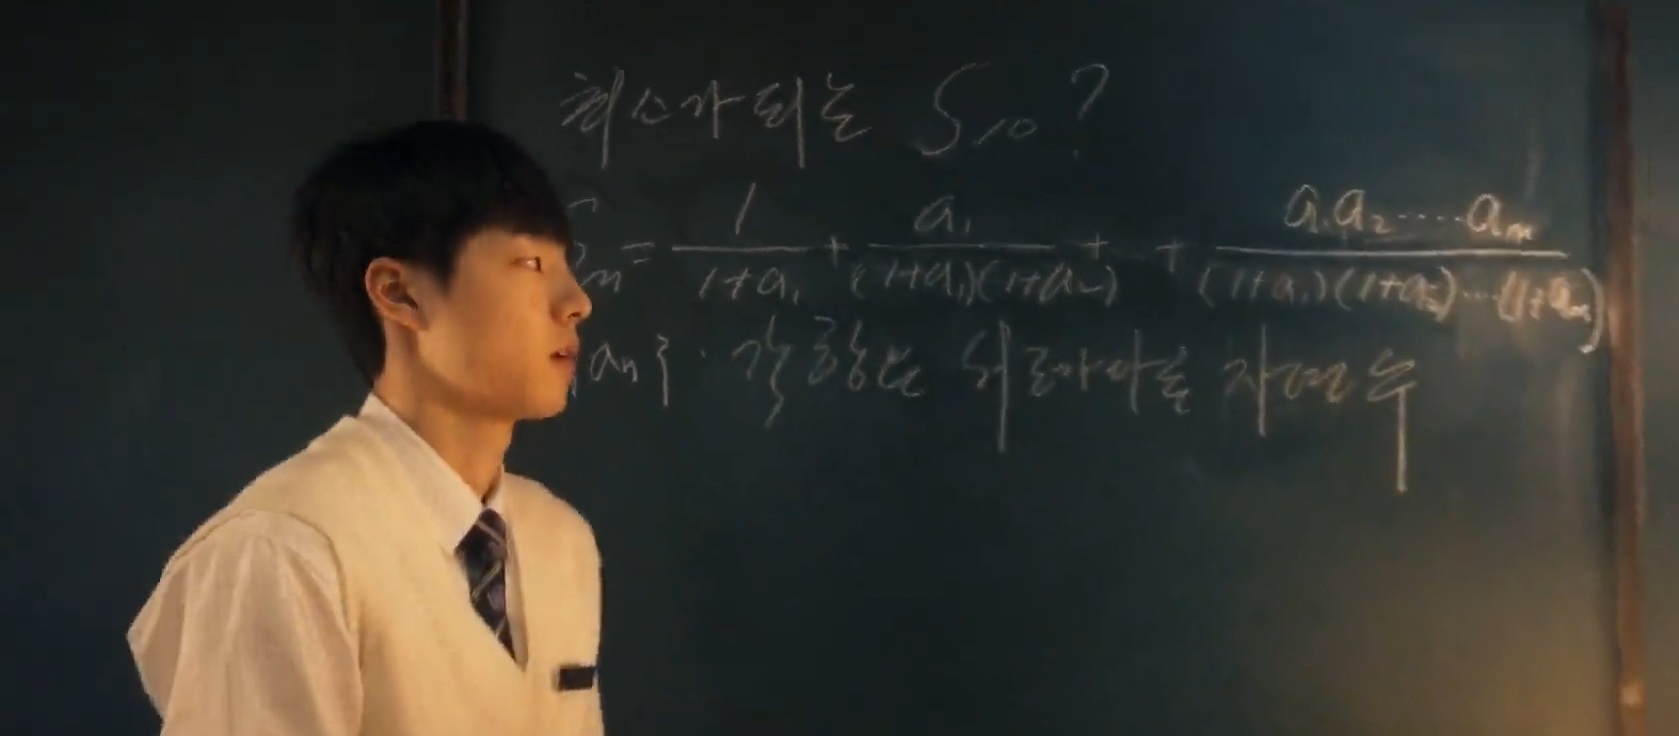 최소가 되는 S₁₀?
= 1/(1+a₁) + a₁/((1+a₁)(1+a₂)) + + a₁a₂·····aₙ/((1+a₁)(1+a₂)···(1+aₙ))
aₙ} · 각 항은 자연수